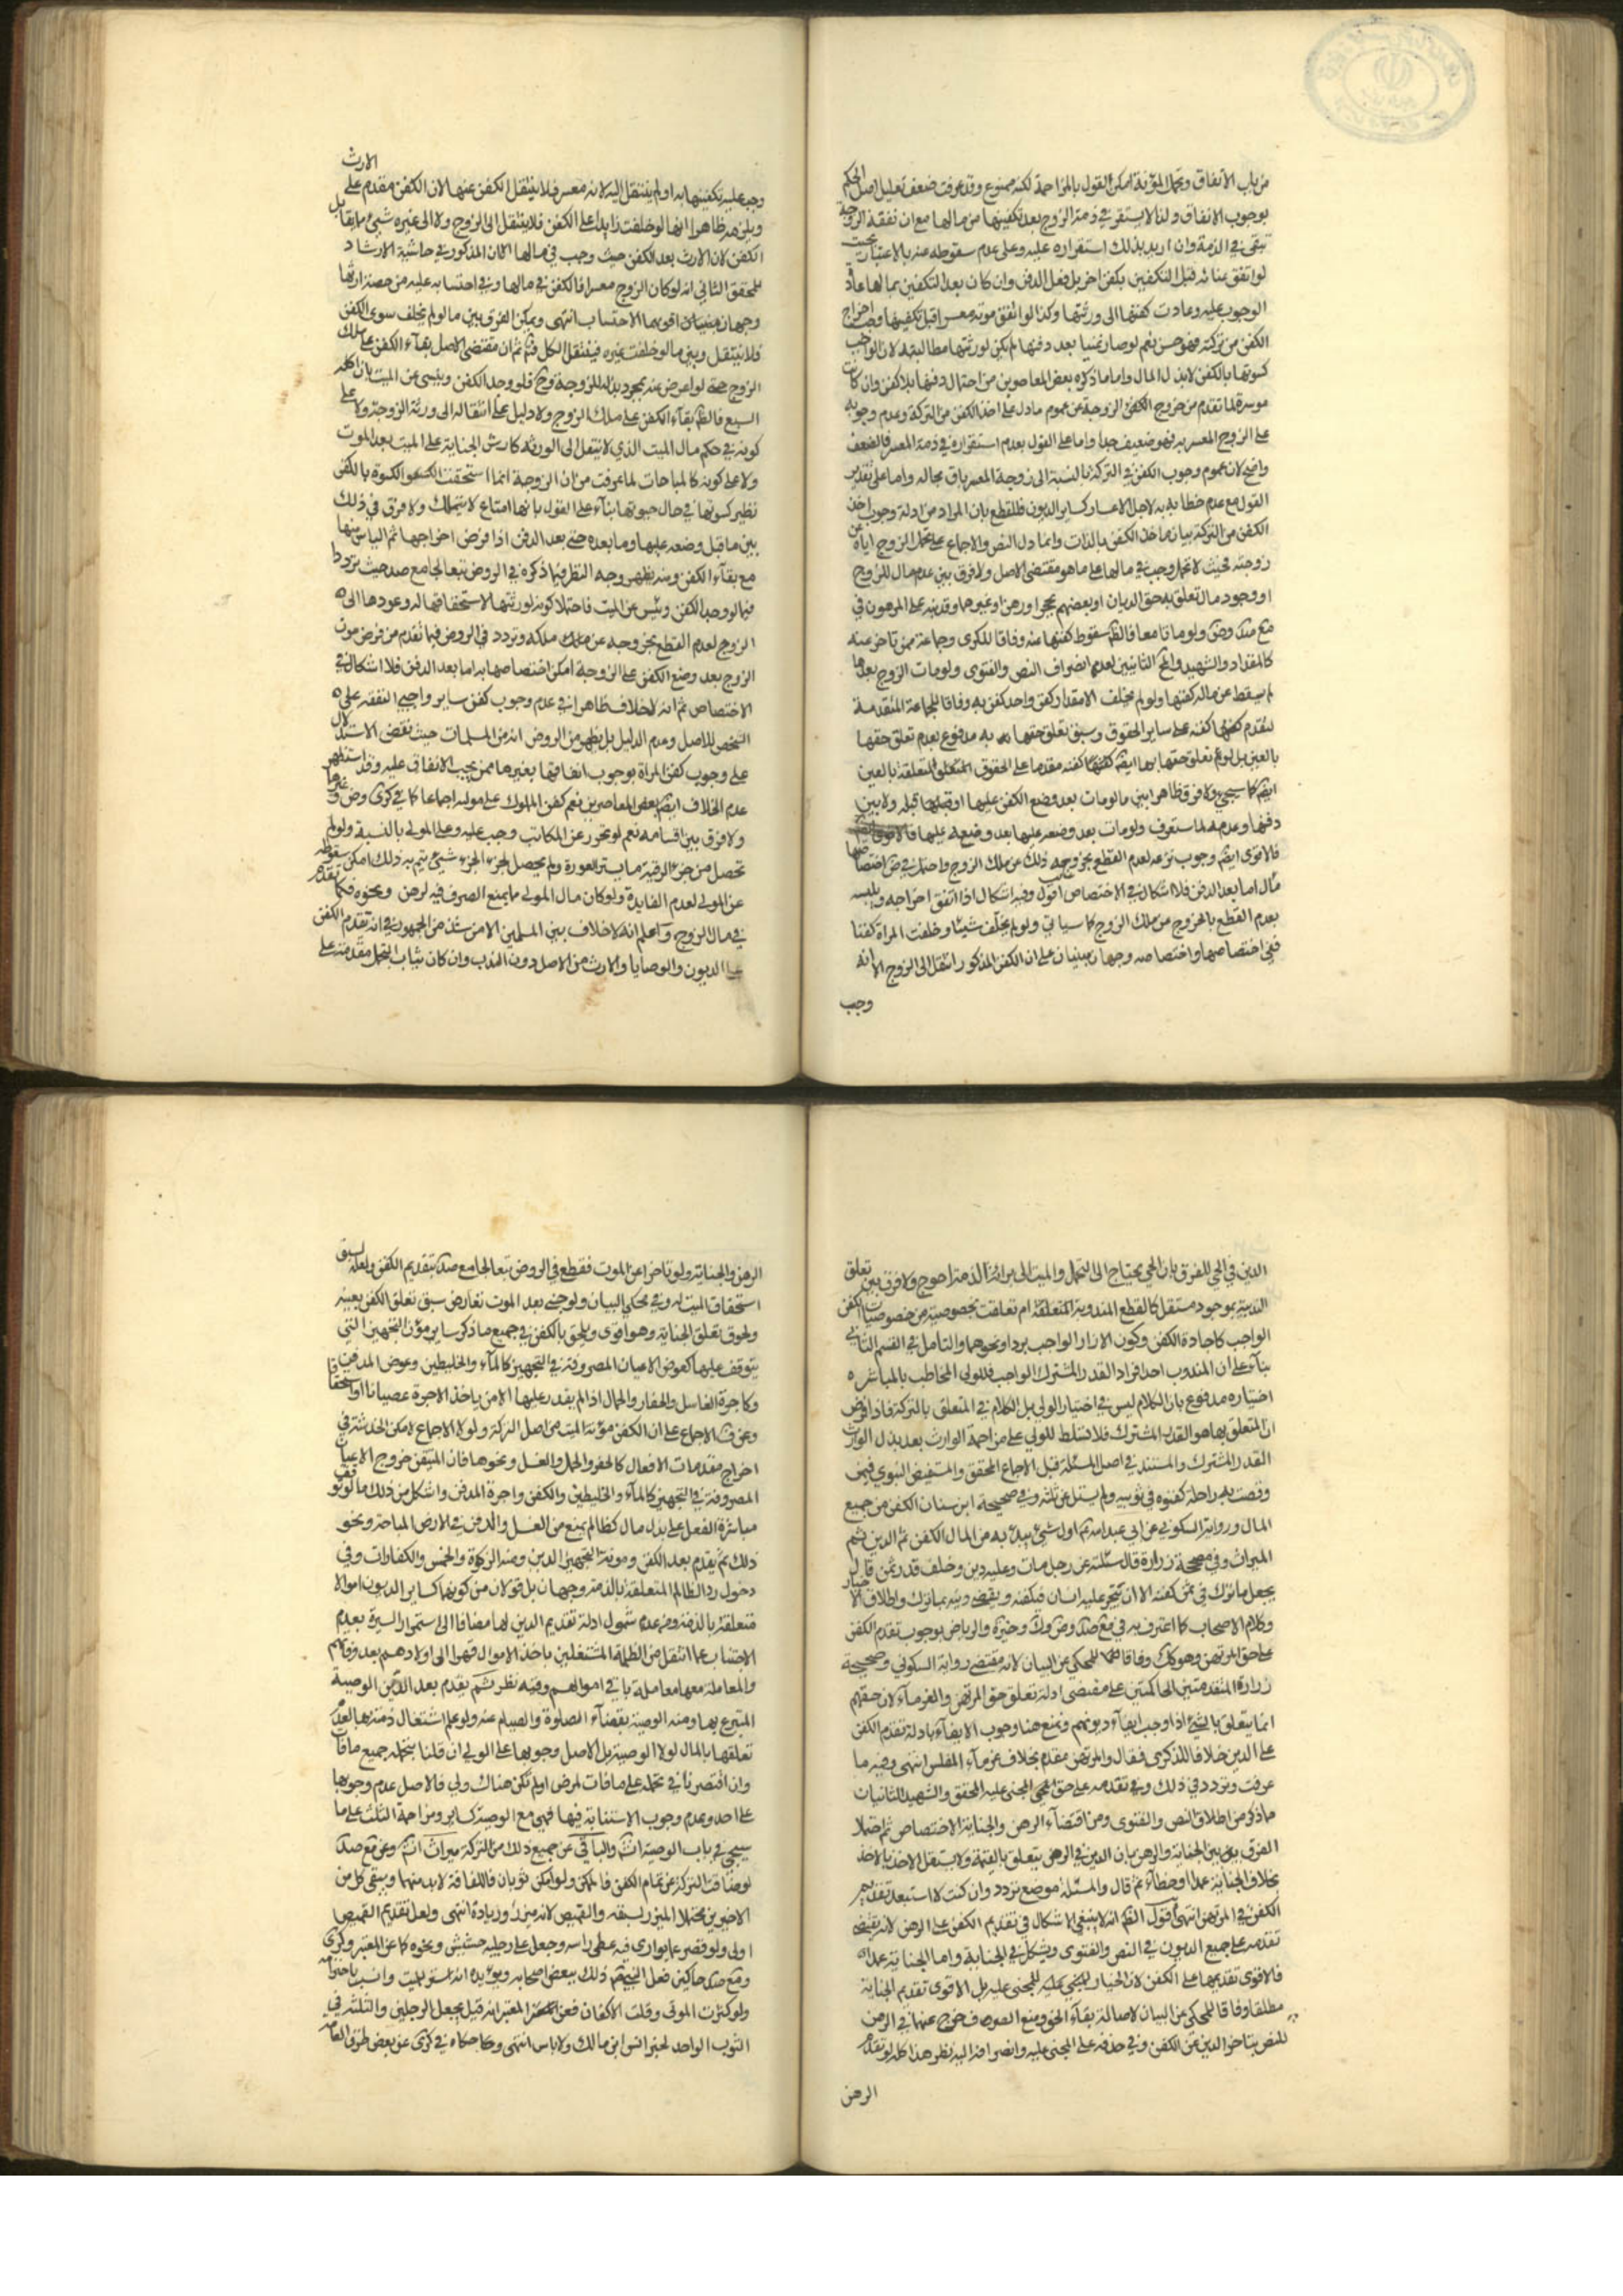 من باب الانفاق وتحمل المؤنة امكن القول بالمزاحمة لكنه ممنوع وقد عرفت ضعف تعليل اصل الحكم
بوجوب الانفاق ولذا لا يستقر في ذمة الزوج بعد تكفينها من مالها مع ان نفقة الزوجة
تبقى في الذمة وان اريد بذلك استقراره عليه وعلى عدم سقوطه عنه بالاعتبار بحيث
لو اتفق غناه قبل التكفين بكفن اخر بل قبل الدفن وان كان بعد التكفين بمالها عاد
الوجوب عليه وعادت كفنها الى ورثتها وكذا لو اتفق موته معسرا قبل تكفينها وجب اخراج
الكفن من تركته فهو حسن نعم لو صار غنيا بعد دفنها لم يكن لورثتها مطالبته لان الواجب
كسوتها بالكفن لا بذل المال واما ما ذكره بعض المعاصرين من احتمال دفنها بلا كفن وان كانت
موسرة لما تقدم من خروج الكفن الزوجة عن عموم ما دل على اخذ الكفن من التركة وعدم وجوبه
على الزوج المعسر به فهو ضعيف جدا واما على القول بعدم استقراره في ذمة المعسر فالضعف
واضح لان عموم وجوب الكفن في التركة بالنسبة الى زوجة المعسر باق بحاله واما على تقدير
القول مع عدم خطابه به لاجل الاعسار كساير الديون فللقطع بان المراد من ادلة وجوب اخذ
الكفن من التركة بيان ماخذ الكفن بالذات وانما دل النص والاجماع على تحمل الزوج اياه عن
زوجته فحيث لا تحمل وجب في مالها على ما هو مقتضى الاصل ولا فرق بين عدم مال للزوج
او وجود مال تعلق به حق الديان او بعضهم بحجر او رهن او غيرهما وقد نبه على المرهون في
مع صد وض ولو ماتا معا فالظ سقوط كفنها عنه وفاقا للكرى وجماعة ممن تاخر عنه
كالمقداد والشهيد والمحقق الثانيين لعدم انصراف النص والفتوى ولو مات الزوج بعدها
لم يسقط عن ماله كفنها ولو لم يخلف الا مقدار كفن واحد كفن به وفاقا للجماعة المتقدمة
لتقدم كفنه على ساير الحقوق وسبق تعلق حقها به مدفوع بعدم تعلق حقها
بالعين بل لو تعلق حقها بها ايضا كان كفنه مقدما على الحقوق المتعلقة بالعين
ايضا كما سيجئ ولا فرق ظاهرا بين ما لو مات بعد وضع الكفن عليها او قبلها قبله ولا بين
دفنها وعدمه لما ستعرف ولو مات بعد وضعه عليها
فالاقوى ايضا وجوب نزعه لعدم القطع بخروجه بذلك عن ملك الزوج واحتمل في ض اختصاصها
قال اما بعد الدفن فلا اشكال في الاختصاص اقول وفيه اشكال اذا اتفق اخراجه وبلبسه
بعدم القطع بالخروج من ملك الزوج كما سياتي ولو لم يخلف شيئا وخلفت المراة كفنا
ففي اختصاصها واختصاصه وجهان مبنيان على ان الكفن المذكور انتقل الى الزوج الا انه
وجب
الارث
وجب عليه تكفينها به او لم ينتقل اليه لانه معسر فلا ينتقل الكفن عنها لان الكفن مقدم على
ويلزمه ظاهرا انها لو خلفت زايدا على الكفن فلا ينتقل الى الزوج ولا الى غيره شيئ مما يقابل
الكفن لان الارث بعد الكفن حيث وجب في مالها لكن المذكور في حاشية الارشاد
للمحقق الثاني انه لو كان الزوج معسرا فالكفن في مالها وفي احتسابه عليه من حصة ارثها
وجهان مبنيان اقويهما الاحتساب انتهى ويمكن الفرق بين ما لو لم يخلف سوى الكفن
فلا ينتقل وبين ما لو خلفت غيره فينتقل الكل فتم ثم ان مقتضى الاصل بقاء الكفن على ملك
الزوج حتى لو اعرض عنه بمجرد بذله للزوجة وح فلو وجد الكفن ويئس من الميت بان اكله
السبع فالظ بقاء الكفن على ملك الزوج ولا دليل على انتقاله الى ورثة الزوجة ولا على
كونه في حكم مال الميت الذي لا ينتقل الى الورثة كارش الجناية على الميت بعد الموت
ولا على كونه كالمباحات لما عرفت من ان الزوجة انما استحقت الكسوة بالكفن
نظير كسوتها في حال حيوتها بناء على القول بانها امتاع لا تتملك ولا فرق في ذلك
بين ما قبل وضعه عليها وما بعده حتى بعد الدفن اذا فرض اخراجها ثم الياس منها
مع بقاء الكفن ومنه يظهر وجه النظر فيما ذكره في الروض تبعا لجامع صد حيث تردد
فيما لو وجد الكفن ويئس من الميت فاحتملا كونه لورثتها لاستحقاقها له وعودها الى
الزوج لعدم القطع بخروجه عن ملكه وتردد في الروض فيما تقدم من فرض موت
الزوج بعد وضع الكفن على الزوجة امكن اختصاصها به اما بعد الدفن فلا اشكال في
الاختصاص ثم انه لا خلاف ظاهرا في عدم وجوب كفن ساير واجبي النفقة على
الشخص للاصل وعدم الدليل بل يظهر من الروض انه من المسلمات حيث نقض الاستدلال
على وجوب كفن المراة بوجوب انفاقها بغيرها ممن يجب الانفاق عليه وقد استظهر
عدم الخلاف ايضا بعض المعاصرين نعم كفن المملوك على مولاه اجماعا كما في كرى وض وغيرها
ولا فرق بين اقسامه نعم لو تحرر عن المكاتب وجب عليه وعلى المولى بالنسبة ولو لم
تحصل من جزء الرقية ما يستر العورة ولم يحصل لجزء الحر شيئ يتم به ذلك امكن سقوطه
عن المولى لعدم الفايدة ولو كان مال المولى مما يمنع الصرف فيه لرهن ونحوه فكما تقدم
في مال الزوج واعلم انه لا خلاف بين المسلمين الا من شذ من الجمهور في انه تقدم الكفن
على الديون والوصايا والارث من الاصل دون الندب وان كان ثياب التجمل مقدمة على
الدين في الحي للفرق بان الحي يحتاج الى التجمل والميت الى براءة الذمة احوج ولا فرق بين تعلق
الندبية بموجود مستقل كالقطع المندوبة المتعلقة ام تعلقت بخصوصية من خصوصيات الكفن
الواجب كاجادة الكفن وكون الازار الواجب بردا ونحوهما والتامل في القسم الثاني
بناء على ان المندوب احد افراد القدر المشترك الواجب فللولي المخاطب بالمباشرة
اختياره مدفوع بان الكلام ليس في اختيار الولي بل الكلام في المتعلق بالتركة فاذا فرض
ان المتعلق بها هو القدر المشترك فلا تسلط للولي على مزاحمة الوارث بعد بذل الوارث
القدر المشترك والمستند في اصل المسئلة قبل الاجماع المحقق والمستفيض النبوي فيمن
وقصت به راحلته كفنوه في ثوبيه ولم يسئل عن ثلثه وفي صحيحة ابن سنان الكفن من جميع
المال ورواية السكوني عن ابي عبد الله ع اول شيئ يبدء به من المال الكفن ثم الدين ثم
الميراث وفي مصححة زرارة قال سئلته عن رجل مات وعليه دين وخلف قدر ثمن كفنه قال
يجعل ما ترك في ثمن كفنه الا ان يتجر عليه انسان فيكفنه ويقضى دينه بما ترك واطلاق الاخبار
وكلام الاصحاب كما اعترف به في مع صد وض وك وخيرة والرياض بوجوب تقدم الكفن
على حق المرتهن وهو كك وفاقا للمحكي عن البيان لانه مقتضى رواية السكوني وصحيحة
زرارة المتقدمتين الحاكمتين على مقتضى ادلة تعلق حق المرتهن والغرماء لان حقهم
انما يتعلق بالشئ اذا وجب ايفاء ديونهم ونمنع هنا وجوب الايفاء بادلة تقدم الكفن
على الدين خلافا للذكرى فقال والمرتهن مقدم بخلاف غرماء المفلس انتهى وفيه ما
عرفت وتردد في ذلك وفي تقدمه على حق المجنى عليه المحقق والشهيد الثانيان
مما ذكر من اطلاق النص والفتوى ومن اقتضاء الرهن والجناية الاختصاص ثم احتملا
الفرق بين الجناية والرهن بان الدين في الرهن يتعلق بالقيمة ولا يستقل الاخذ بالاخذ
بخلاف الجناية عمدا او خطاء ثم قال والمسئلة موضع تردد وان كنت لا استبعد تقديم
الكفن في المرتهن انتهى اقول الظ انه لا ينبغي الاشكال في تقديم الكفن على الرهن لانه يقتضي
تقدمه على جميع الديون في النص والفتوى ويشكل في الجناية واما الجناية عمدا
فالاقوى تقديمها على الكفن لان الخيار للمجنى عليه بل الاقوى تقديم الجناية
مطلقا وفاقا للمحكي عن البيان لاصالة بقاء الحق ومنع النصوص خرج عنها في الرهن
للنص بتاخر الدين عن الكفن وفي صدقه على المجنى عليه وانصرافه اليه نظر هذا كله لو تقدم
الرهن
الرهن والجناية ولو تاخرا عن الموت فقطع في الروض تبعا لجامع صد بتقديم الكفن ولعله لسبق
استحقاق الميت له وفي محكي البيان ولو جنى بعد الموت تعارض سبق تعلق الكفن بعينه
ولحوق تعلق الجناية وهو اقوى ويلحق بالكفن في جميع ما ذكر ساير مؤن التجهيز التي
يتوقف عليها كعوض الاعيان المصروفة في التجهيز كالماء والخليطين وعوض المدفن
وكاجرة الغاسل والحفار والحمال اذا لم يقدر عليها الا من ياخذ الاجرة عصيانا او استحقاقا
وعن ف الاجماع على ان الكفن مؤنة الميت من اصل التركة ولولا الاجماع لامكن الخدشة في
اخراج مقدمات الافعال كالحفر والحمل والغسل ونحوها فان المتيقن خروج الاعيان
المصروفة في التجهيز كالماء والخليطين والكفن واجرة المدفن واشكل من ذلك ما لو توقف
مباشرة الفعل على بذل مال كظالم يمنع من الغسل والدفن في الارض المباحة ونحو
ذلك ثم يقدم بعد الكفن ومونة التجهيز الدين ومنه الزكوة والخمس والكفارات وفي
دخول رد المظالم المتعلقة بالذمة وجهان بل قولان من كونها كساير الديون اموالا
متعلقة بالذمة ومن عدم شمول ادلة تقديم الدين لها مضافا الى استمرار السيرة بعدم
الاجتناب عما انتقل من الظلمة المشتغلين باخذ الاموال قهرا الى اولادهم بعد وفاتهم
والمعاملة معها معاملة باقي اموالهم وفيه نظر ثم يقدم بعد الدين الوصية
المتبرع بها ومنه الوصية بقضاء الصلوة والصيام عنه ولو علم اشتغال ذمته بها لعدم
تعلقها بالمال لولا الوصية بل الاصل وجوبها على الولي ان قلنا بتحمله جميع ما فات
وان اقتصرنا في تحمله على ما فات لمرض او لم تكن هناك ولي فالاصل عدم وجوبها
على احد وعدم وجوب الاستنابة فيها فهي مع الوصية كساير ومزاحمة الثلث على ما
سيجئ في باب الوصية انش والباقي عن جميع ذلك من التركة ميراث انش وعن مع صد
لو ضاقت التركة عن تمام الكفن فالممكن ولو امكن ثوبان فاللفافة لابد منها ويبقى كل من
الاخيرين محتملا الميزر لسبقه والقميص لانه ميزر وزيادة انتهى ولعل تقديم القميص
اولى ولو قصر عما يوارى فيه غطى راسه وجعل على رجليه حشيش ونحوه كما عن المعتبر وكرى
ومع صد حاكين فعل النبي ص ذلك ببعض اصحابه ويؤيده انه استر للميت وانسب باحترامه
ولو كثرت الموتى وقلت الاكفان فعن المعتبر انه قيل يجعل الرجلين والثلثة في
الثوب الواحد لخبر انس ابن مالك ولا باس انتهى وحكاه في كرى عن بعض طرق العامة